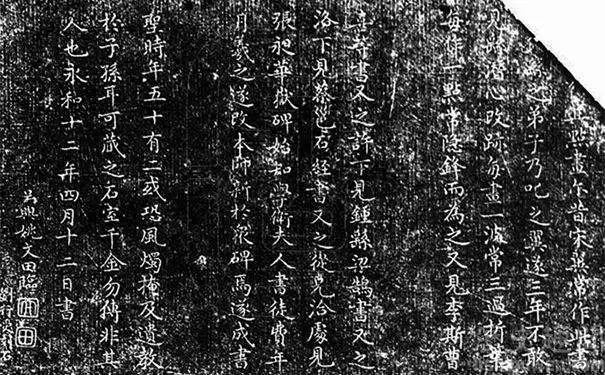 點畫尔昔宋翼常作此書
之弟子乃叱之翼遂三年不敢
見繇潛心改跡每畫一波常三過折筆
每作一點常隱鋒而為之又見李斯曹
喜等書又之許下見鍾繇梁鵠書又之
洛下見蔡邕石經書又之從兄洽處見
張昶華嶽碑始知學衛夫人書徒費年
月羲之遂改本師所於眾碑焉遂成書
聖時年五十有二或恐風燭掩及遺教
於子孫耳可藏之石室千金勿傳非其
人也永和十二年四月十二日書
吳興姚文田臨